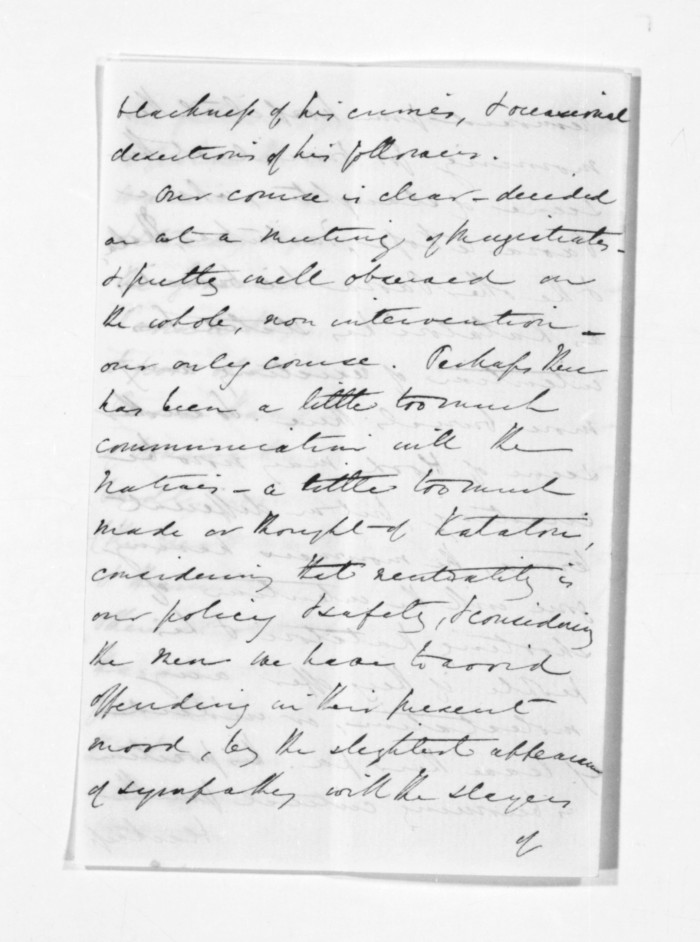 blackness of his crimes, & occasional
desertions of his followers.
Our course is clear - decided
on at a meeting of Magistrates -
& pretty well observed on
the whole, non intervention -
our only course. Perhaps there
has been a little too much
communication with the
Natives - a little too much
made or thought of Katatori,
considering that neutrality is
our policy & safety, & considering
the men we have to avoid
offending in their present
mood, by the slightest appearance
of sympathy with the slayers
of